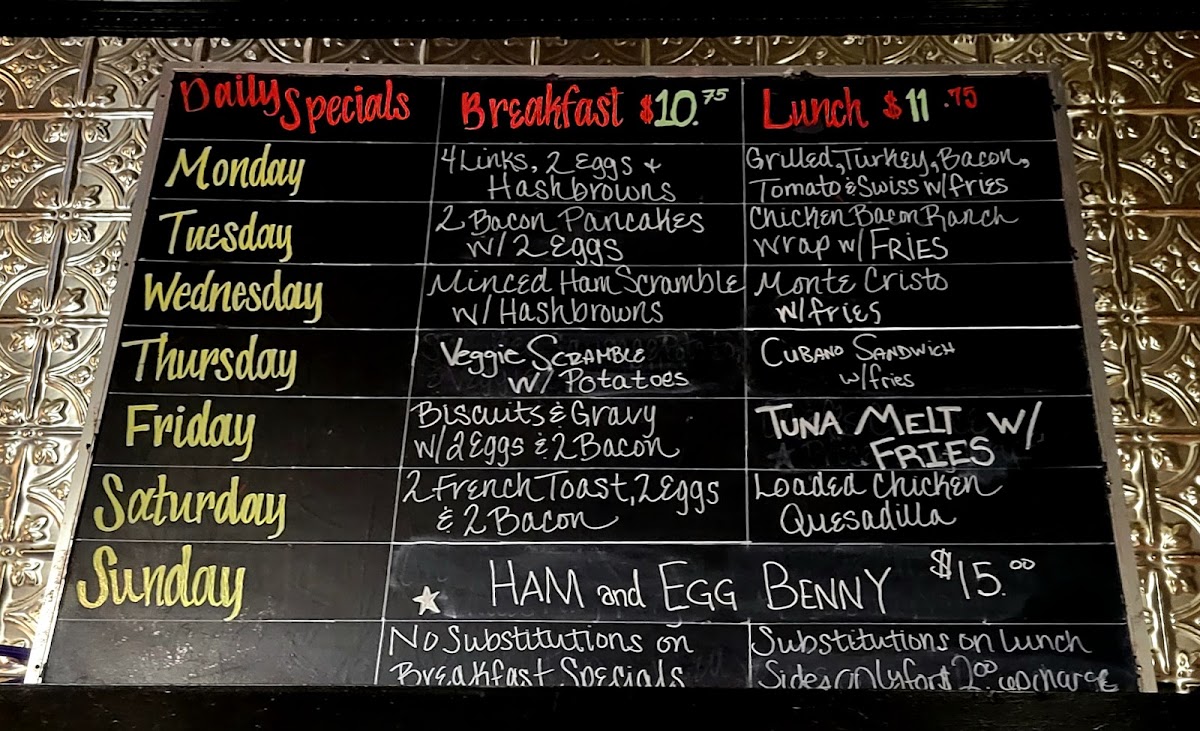 Daily Specials
Breakfast $10.75
Lunch $11.75
Monday
4 Links, 2 Eggs +
Hashbrowns
Grilled, Turkey, Bacon,
Tomato & Swiss w/fries
Tuesday
2 Bacon Pancakes
w/ 2 Eggs
Chicken Bacon Ranch
wrap w/ FRIES
Wednesday
Minced Ham Scramble
w/ Hashbrowns
Monte Cristo
w/fries
Thursday
Veggie SCRAMBLE
w/ Potatoes
CUBANO SANDWICH
w/fries
Friday
Biscuits & Gravy
w/ 2 Eggs & 2 Bacon
TUNA MELT W/
FRIES
Saturday
2 French Toast, 2 Eggs
& 2 Bacon
Loaded Chicken
Quesadilla
Sunday
HAM and EGG BENNY $15.00
No Substitutions on
Breakfast Specials
Substitutions on Lunch
Sides only for $2.00 upcharge